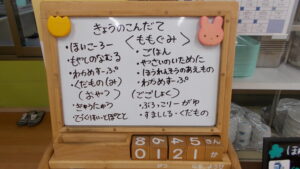 きょうのこんだて
・ほいこーろー
・もやしのなむる
・わかめすーぷ
・くだもの(み)
(おやつ)
・ぎゅうにゅう
〈ももぐみ〉
・ごはん
・やさいのいために
・ほうれんそうのあえもの
・わかめすーぷ
〈ごごしょく〉
・ぶろっこりーがゆ
・すましじる・くだもの